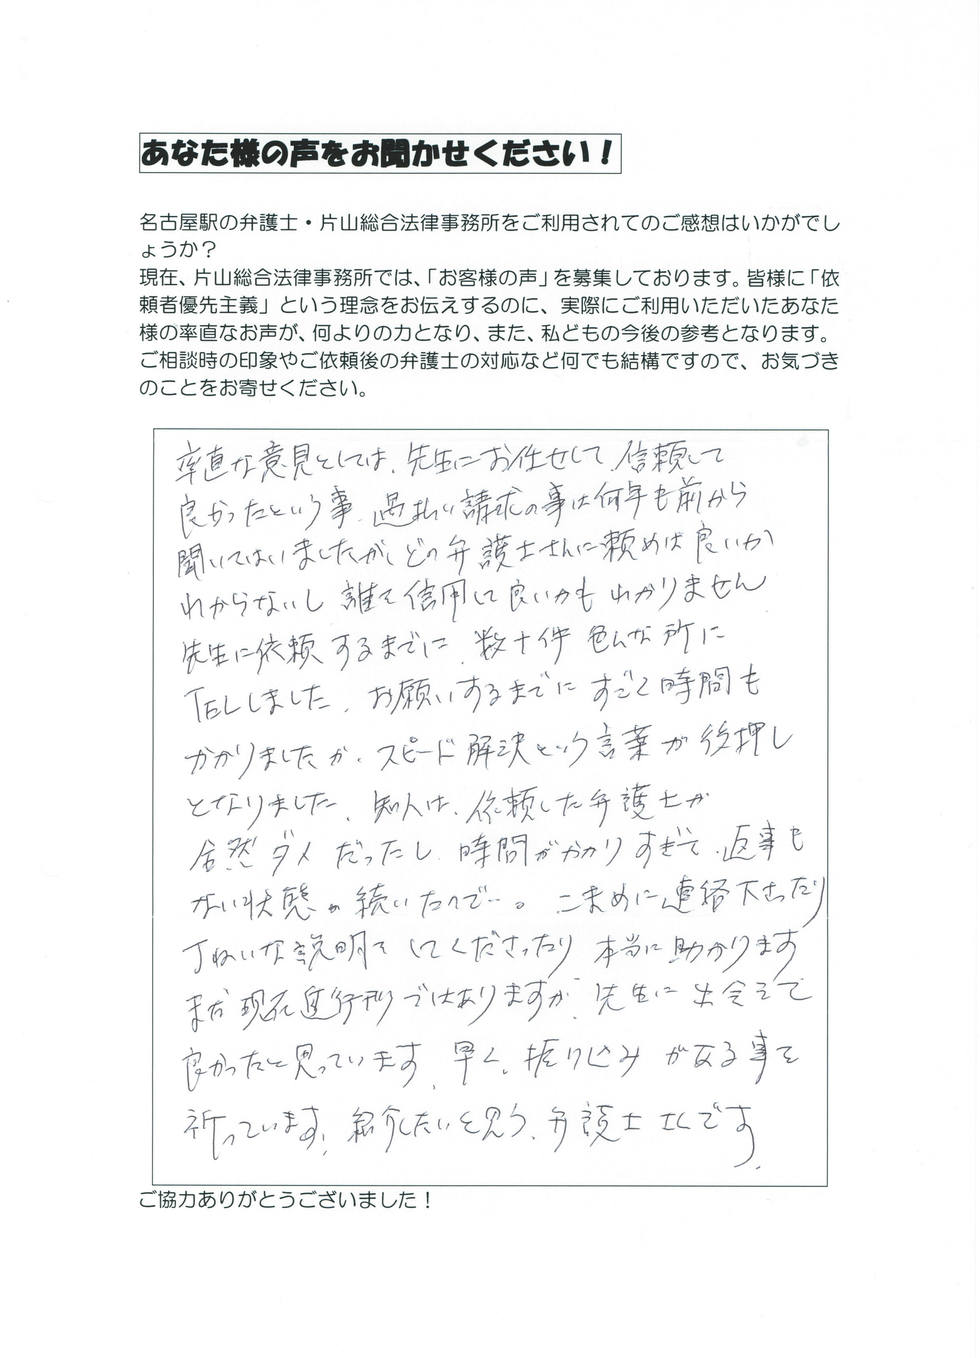 あなた様の声をお聞かせください！
名古屋駅の弁護士・片山総合法律事務所をご利用されてのご感想はいかがでし
ょうか？
現在、片山総合法律事務所では、「お客様の声」を募集しております。皆様に「依
頼者優先主義」という理念をお伝えするのに、実際にご利用いただいたあなた
様の率直なお声が、何よりの力となり、また、私どもの今後の参考となります。
ご相談時の印象やご依頼後の弁護士の対応など何でも結構ですので、お気づき
のことをお寄せください。
率直な意見としては、先生にお任せして、信頼して
良かったという事、過払い請求の事は何年も前から
聞いてはいましたが、どの弁護士さんに頼めば良いか
わからないし 誰を信用して良いかもわかりません
先生に依頼するまでに、数十件 色んな所に
TELしました、お願いするまでに すごく時間も
かかりましたが、スピード解決という言葉が後押し
となりました、知人は、依頼した弁護士が
全然ダメだったし、時間がかかりすぎて、返事も
ない状態が続いたので…。こまめに連絡下さったり
丁ねいな説明をしてくださったり 本当に助かります
まだ現在進行形ではありますが、先生に出会えて
良かったと思っています、早く、振り込みがある事を
祈っています、紹介したいと思う、弁護士さんです、
ご協力ありがとうございました！